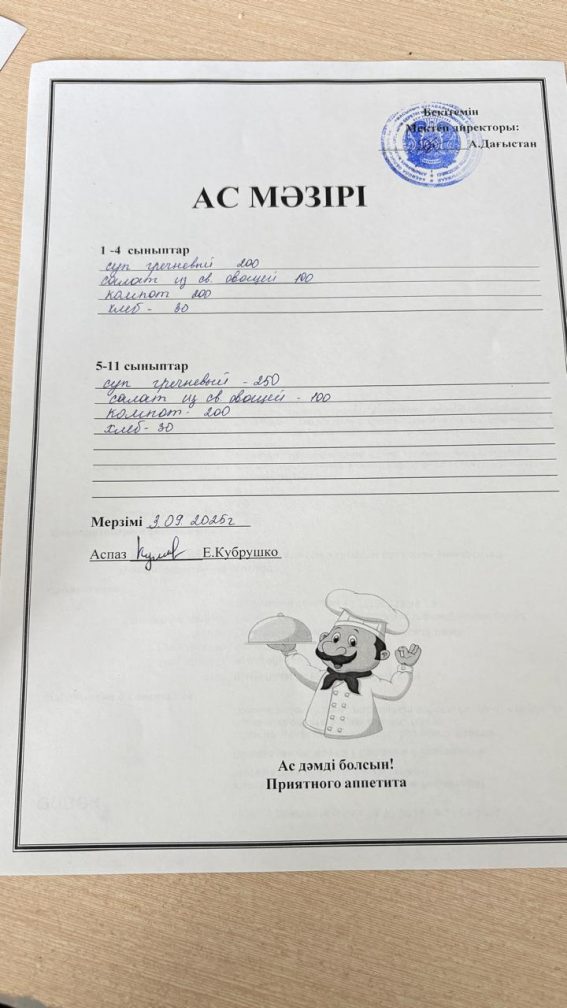 Бекітемін
Мектеп директоры:
А.Дағыстан
АС МӘЗІРІ
1 -4 сыныптар
суп гречневый 200
салат из св. овощей 100
компот 200
хлеб - 30
5-11 сыныптар
суп гречневый - 250
салат из св овощей - 100
компот - 200
хлеб - 30
Мерзімі 3.09 2025г
Аспаз Е.Кубрушко
Ас дәмді болсын!
Приятного аппетита